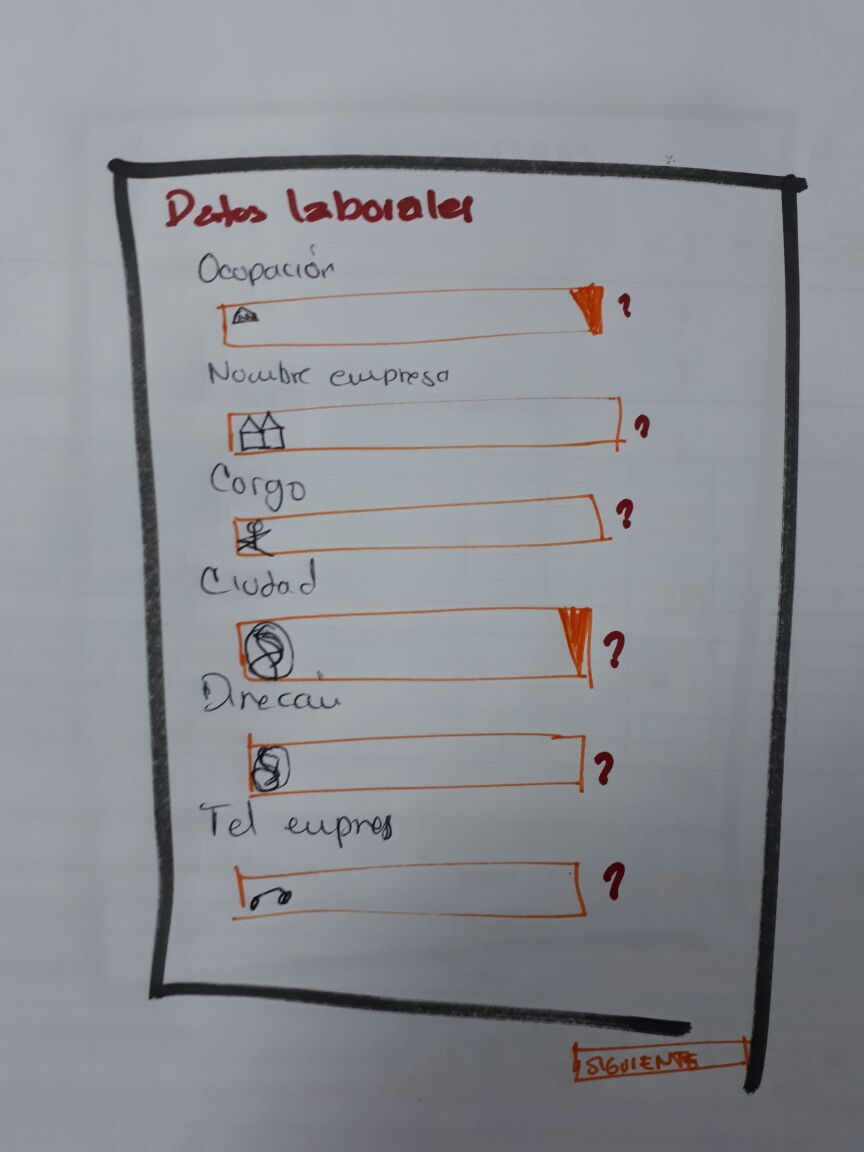 Datos laborales
Ocupación
?
Nombre empresa
?
Cargo
?
Ciudad
?
Direcciu
?
Tel empres
?
SIGUIENTE